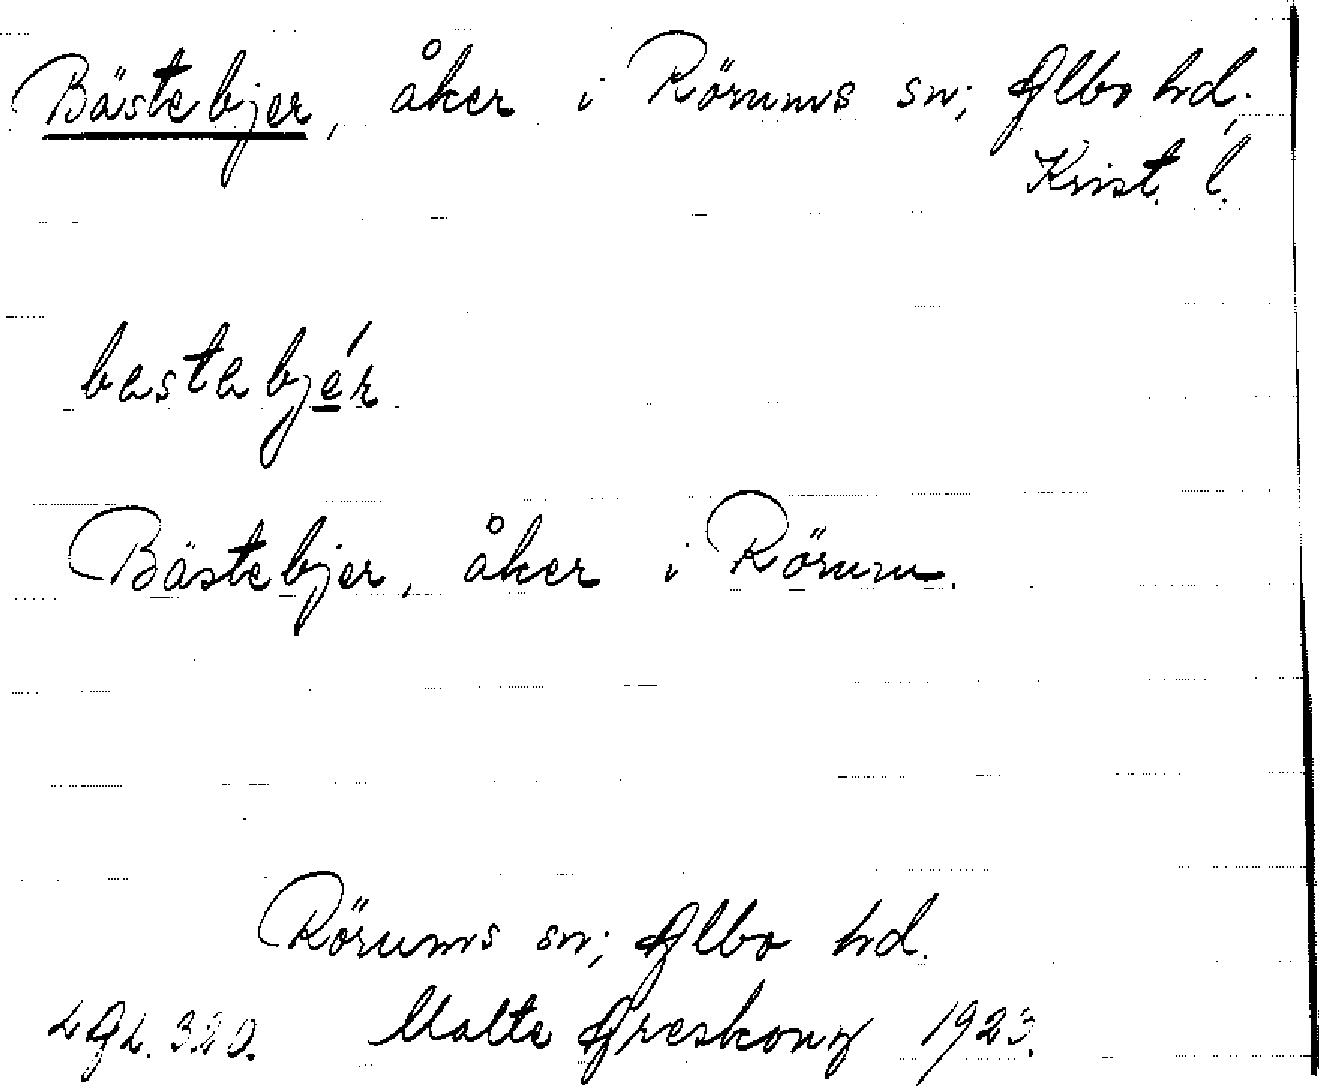 Bästebjer, åker i Rörums sn; Albo hd.
Krist. l.
Bästebjer, åker i Rörum.
Rörums sn; Albo hd.
LAL. 320. Malte Areskoug 1923.